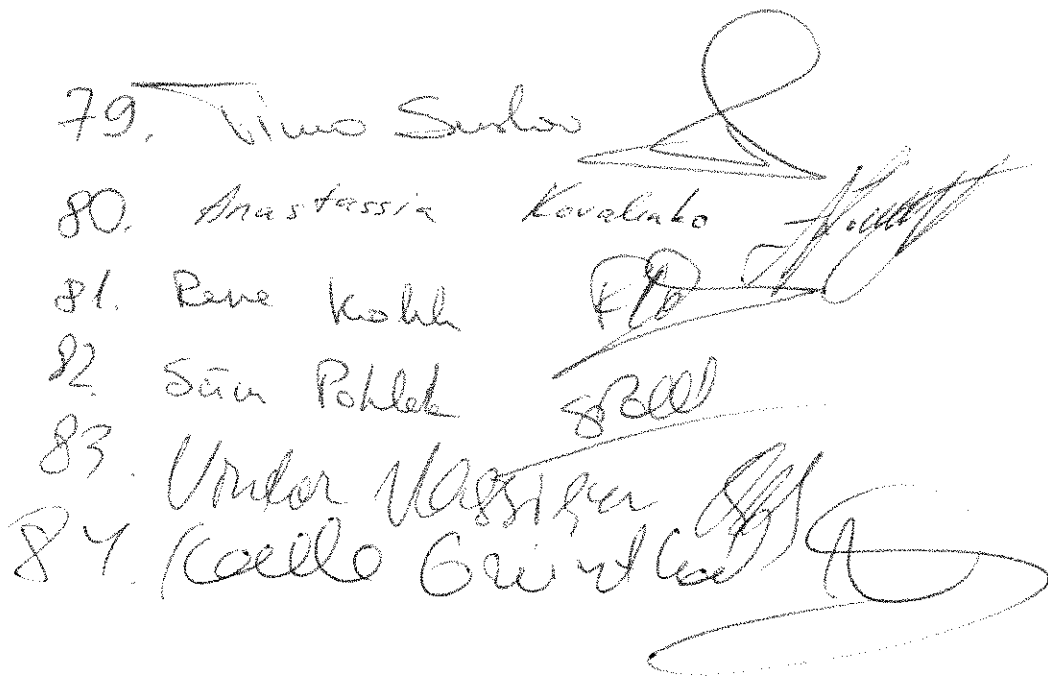 79. Timo Suslov
80. Anastassia Kovalenko
81. Rene Kohk
82. Siim Pohlak
83. Viktor Vassiljev
84. Kalle Grünthal